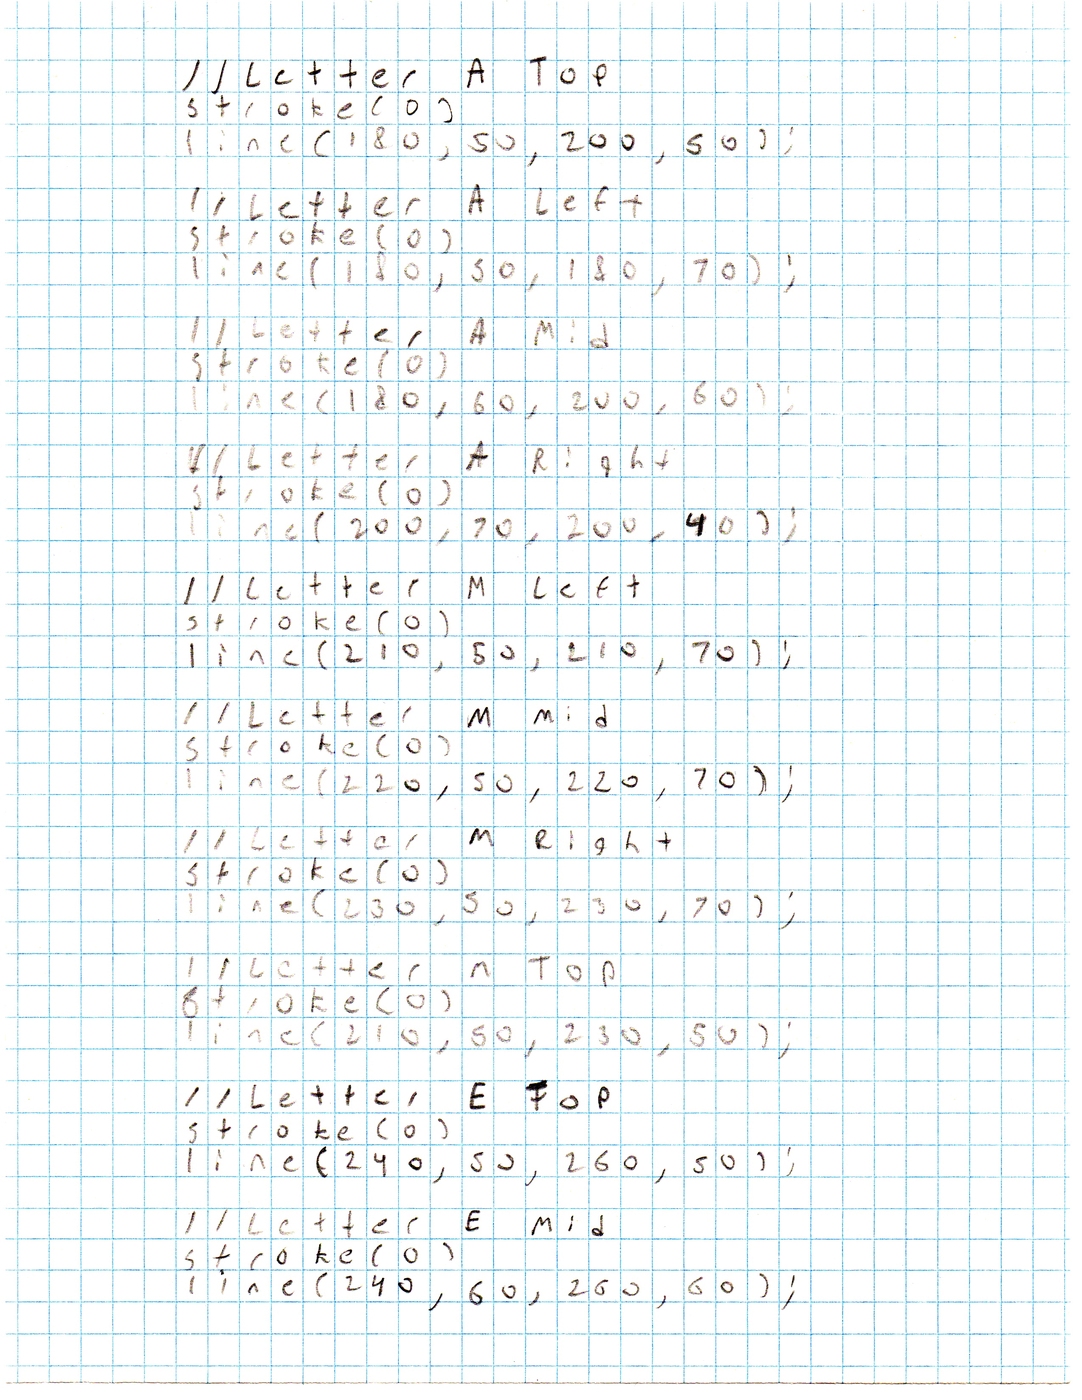 //Letter A Top
stroke(0)
line(180, 50, 200, 50);
//Letter A Left
stroke(0)
line(180, 50, 180, 70);
//Letter A Mid
stroke(0)
line(180, 60, 200, 60);
//Letter A Right
stroke(0)
line(200, 70, 200, 40);
//Letter M Left
stroke(0)
line(210, 50, 210, 70);
//Letter M Mid
stroke(0)
line(220, 50, 220, 70);
//Letter M Right
stroke(0)
line(230, 50, 230, 70);
//Letter n Top
stroke(0)
line(210, 50, 230, 50);
//Letter E Top
stroke(0)
line(240, 50, 260, 50);
//Letter E Mid
stroke(0)
line(240, 60, 260, 60);